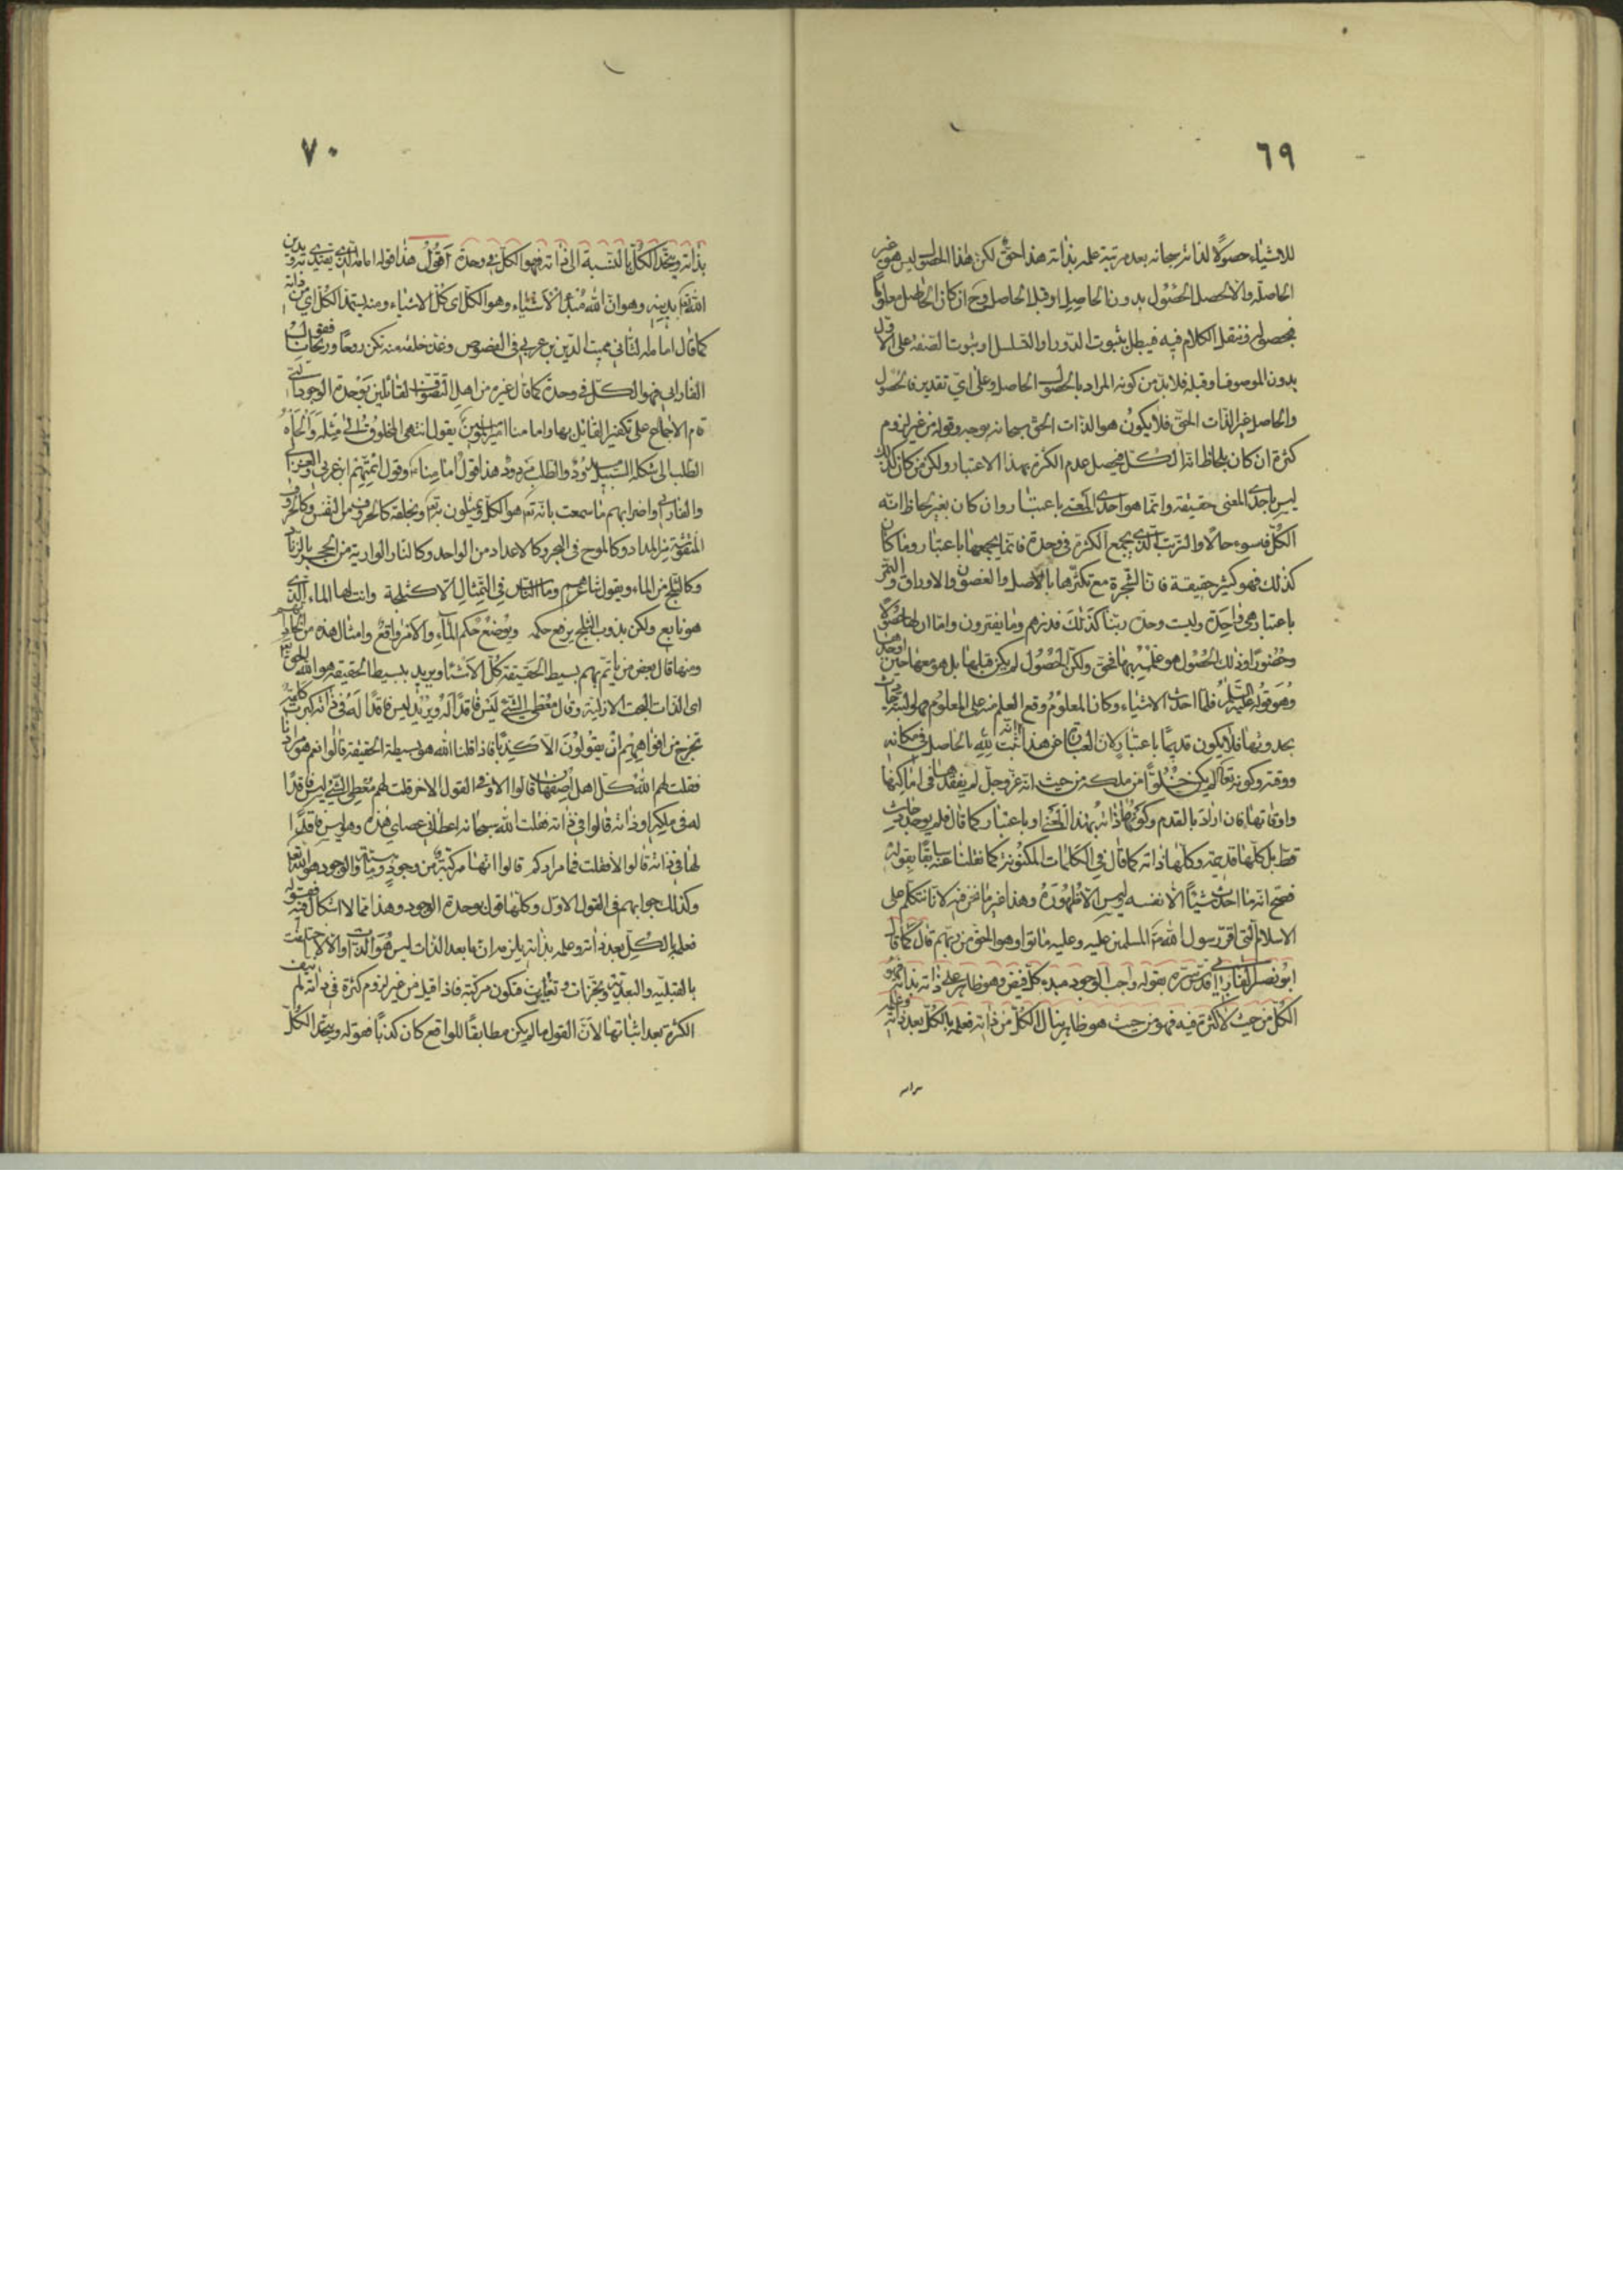 ٦٩
للاشياء حصولا لذاته سبحانه بعد مرتبة علمه بذاته هذا حق لكن هذا الحصول ليس هو غير
الحاصلة والا لحصل الحصول بدون الحاصل او قبل الحاصل وح ان كان الحاصل معلوما
فحصوله فننقل الكلام فيه فيبطل بثبوت الدور او التسلسل او ثبوت الصفة على الاول
بدون الموصوف او قبله فلابد من كونه المراد بالحصول الحاصل وعلى اى تقدير فالحصول
والحاصل غير الذات الحق فلا يكون هو الذات الحق سبحانه بوجه وقوله من غير لزوم
كثرة ان كان بلحاظ انه الكل فيحصل عدم الكثرة بهذا الاعتبار ولكن من كان كذلك
ليس باحدى المعنى حقيقة وانما هو احدى المعنى باعتبار وان كان بغير لحاظ انه
الكل فسوء حالا والترتب الذى يجمع الكثرة فى وحدة فانما يجمعها باعتبار وما كان
كذلك فهو كثير حقيقة فان الشجرة مع تكثرها بالاصل والغصون والاوراق والثمر
باعتبار هى واحدة وليست وحدة ربنا كذلك فذرهم وما يفترون واما ان لها حصولا
وحضورا وذلك الحصول هو علمه بها فحق ولكن الحصول لم يكن قبلها بل هو معها حين اوجدها
وهو قوله عليه السلام فلما احدث الاشياء وكان المعلوم وقع العلم منه على المعلوم فهو لنسبة حادث
بحدوثها فلا يكون قديما باعتبار لان العبارة عن هذا انه ثبت لله الحاصل فى مكانه
ووقته وكونه تعالى لم يكن خلوا من ملكه من حيث انه عز وجل لم يفقدها فى اماكنها
واوقاتها فان اراد بالقدم وكونها ذاته بهذا النحو او باعتبار كما قال فلم يوجد حادث
قط بل كلها قديمة وكلها ذاته كما قال فى الكلمات المكنونة كما نقلنا عنه سابقا بقوله
فصح انه ما احدث شيئا الا نفسه ليس الا ظهوره وهذا غير ما نحن فيه لانا نتكلم على
الاسلام الذى اقر رسول الله ص المسلمين عليه وعليه ماتوا وهو الحق من ربهم قال كما قال
ابو نصر الفارابى قدس سره بقوله واجب الوجود مبدء كل فيض وهو ظاهر على ذاته بذاته فله
الكل من حيث لا كثرة فيه فهو من حيث هو ظاهر ينال الكل من ذاته فعلمه بالكل بعد ذاته وعلمه
٧٠
بذاته ويتحد الكل بالنسبة الى ذاته فهو الكل فى وحدة اقول هذا قوله امامه الذى يقتدى به ويدين
الله تم بدينه وهو ان الله مبدأ الاشياء وهو الكل اى كل الاشياء ومنه يستمد الكل اى من ذاته
كما قال امامه الثانى مميت الدين بن عربى فى الفصوص وغذ خلقه منه تكن روحا وريحانا فقول
الفارابى فهو الكل فى وحدة كما قال غيره من اهل التصوف القائلين بوحدة الوجود التى
قام الاجماع على تكفير القائل بها واما منا امير المؤمنين يقول انتهى المخلوق الى مثله والجأه
الطلب الى شكله السبيل مسدود والطلب مردود هذا قول امامنا ع وقول ائمتهم ابن عربى والغزالى
والفارابى واضرابهم ما سمعت بانه تم هو الكل ويمثلون به تم وبخلقه كالحروف من النفس وكالحروف
المنقوشة من المداد وكالموج فى البحر وكالاعداد من الواحد وكالنار الوارية من الحجر بالزناد
وكالثلج من الماء ويقول شاعرهم وما الناس فى التمثال الا كثلجة وانت لها الماء الذى
هو نابع ولكن بذوب الثلج يرفع حكمه ويوضع حكم الماء والامر واقع وامثال هذه من الحادهم
ومنها قال بعض من ياتم بهم بسيط الحقيقة كل الاشياء ويريد ببسيط الحقيقة هو الله الحق تم
اى الذات البحت الازلية وقال معطى الشئ ليس فاقدا له ويريد ليس فاقدا له فى ذاته كبرت كلمة
تخرج من افواههم ان يقولون الا كذبا فاذا قلنا الله هو بسيطة الحقيقة قالوا نعم هو مرادنا
فقلت لهم الله كل اهل اصفهان قالوا لا وفى القول الاخر قلت لهم معطى الشئ ليس فاقدا
له فى ملكه او ذاته قالوا فى ذاته فقلت الله سبحانه اعطانى عصاى هذه وهو ليس فاقدا
لها فى ذاته قالوا لا فقلت فما مرادكم قالوا انها مركبة من وجود وماهية والوجود هو الله تعالى
وكذلك جوابهم فى القول الاول وكلها قول بوحدة الوجود وهذا مما لا اشكال فيه فقوله
فعلمه بالكل بعد ذاته وعلمه بذاته يلزمه ان ما بعد الذات ليس هو الذات والا لاختلفت
بالقبلية والبعدية وتجزات وتغايرت فتكون مركبة فاذا قيل من غير لزوم كثرة فى ذاته لم
الكثرة بعد اثباتها لان القول ما لم يكن مطابقا للواقع كان كذبا فقوله ويتحد الكل